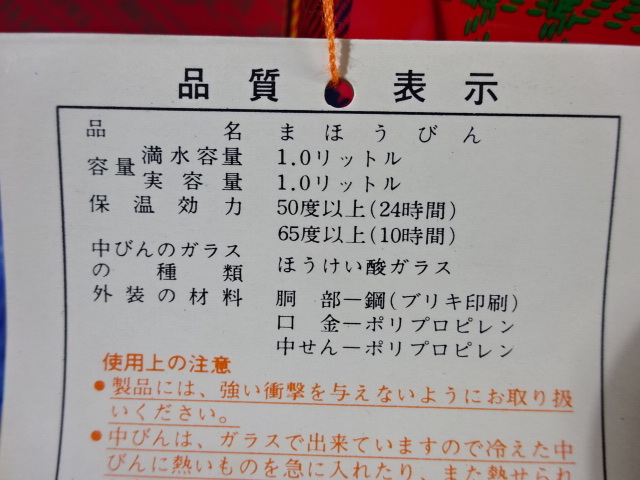 品質表示
品名 まほうびん
容量 満水容量 1.0リットル
実容量 1.0リットル
保温効力 50度以上(24時間)
65度以上(10時間)
中びんのガラスの種類 ほうけい酸ガラス
外装の材料 胴部ー鋼(ブリキ印刷)
口金ーポリプロピレン
中せんーポリプロピレン
使用上の注意
●製品には、強い衝撃を与えないようにお取り扱
いください。
●中びんは、ガラスで出来ていますので冷えた中
びんに熱いものを急に入れたり、また熱せられ